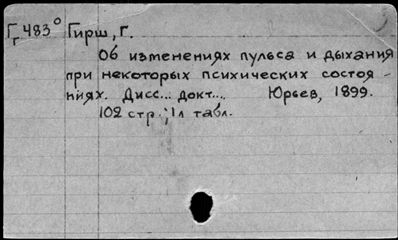 Гг 483⁰ Гирш, Г.
Об изменениях пульса и дыхания
при некоторых психических состоя-
ниях. Дисс... докт... Юрьев, 1899.
102 стр.; 1л табл.